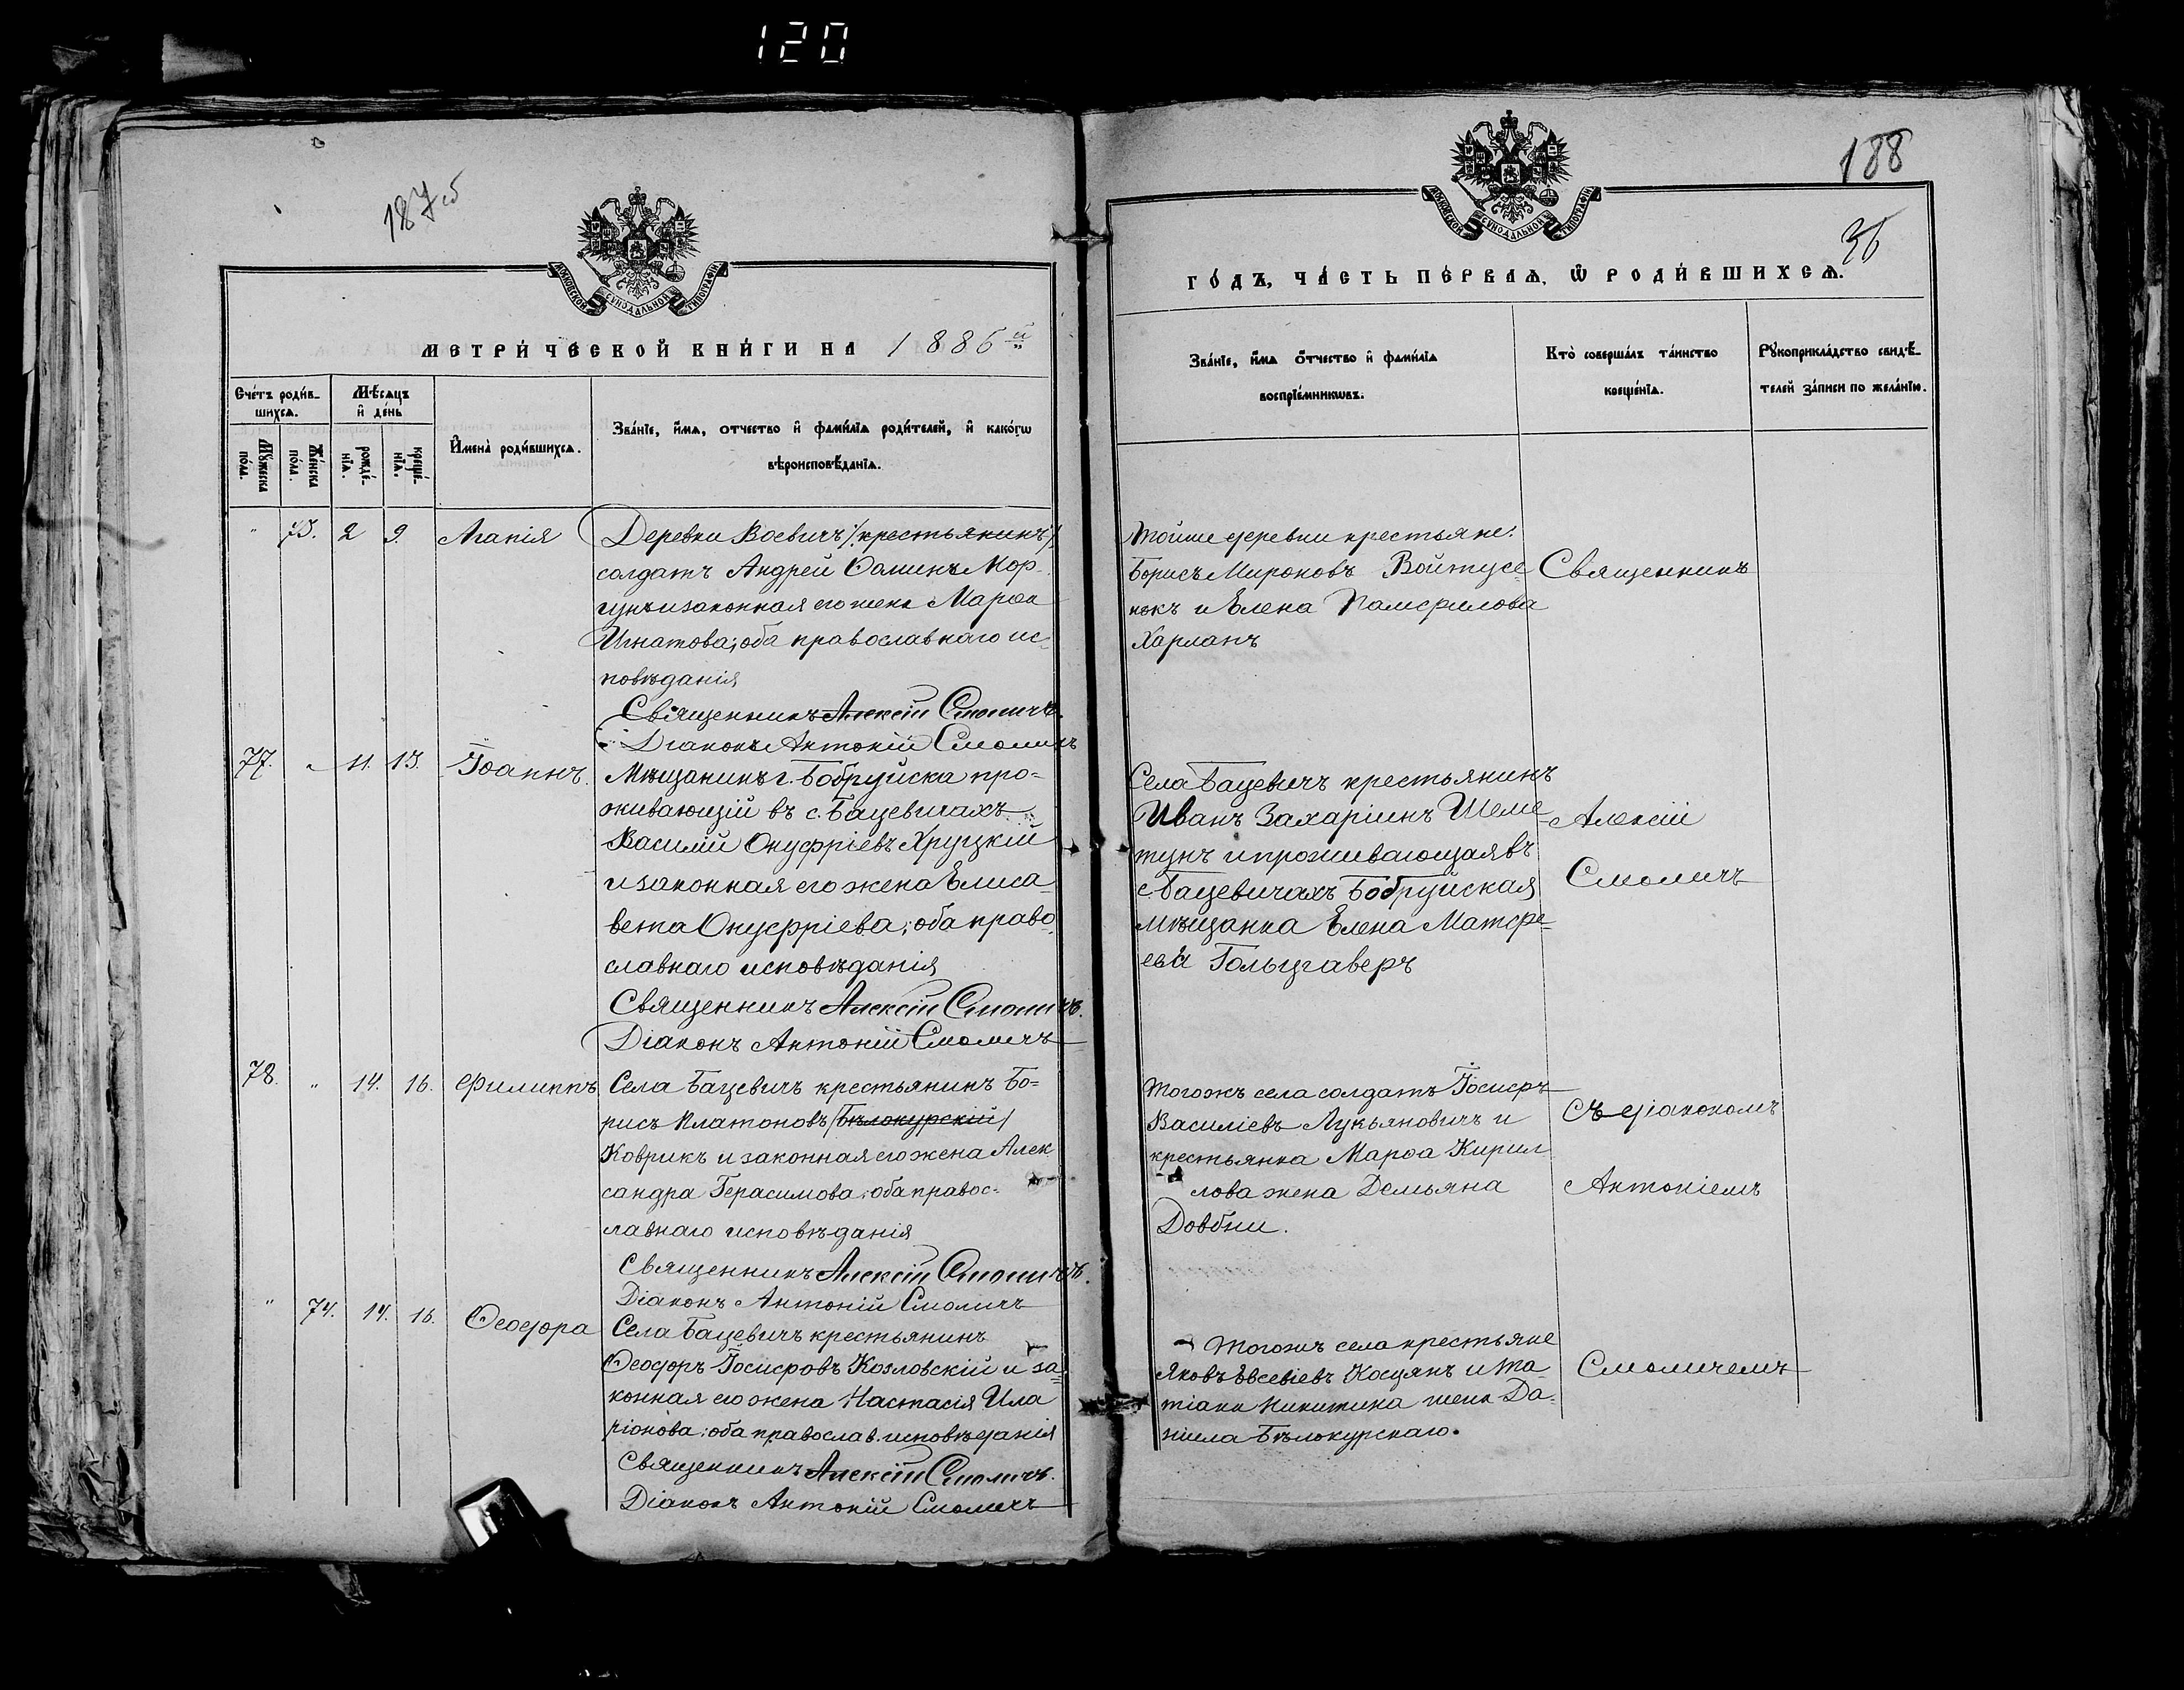 120
187об
МОСКОВСКОЙ СУНОДАЛЬНОЙ ТИПОГРАФІИ
МЕТРИ́ЧЕСКОЙ КНИ́ГИ НА 1886й
Сче́тъ роди́в-
шихсѧ.
Мѣ́сѧцъ
и де́нь
Мꙋ́жеска
по́ла.
Же́нска
по́ла.
рожде́-
нїѧ.
креще́-
нїѧ.
Имена̀ роди́вшихсѧ.
Зва́нїе, и́мѧ, отчество и фами́лїѧ роди́телей, и како́гѡ
вѣроисповѣ́данїѧ.
" 73. 2 9. Агапія
Деревни Воевичъ /крестьянинъ/
солдатъ Андрей Ѳоминъ Мор-
гунъ и законная его жена Марѳа
Игнатова; оба православнаго ис-
повѣданія
Священникъ Алексій Смоличъ.
Діаконъ Антоній Смоличъ
77. " 11. 13. Іоаннъ.
Мѣщанинъ г. Бобруйска про-
живающій въ с. Бацевичахъ
Василій Онуфріевъ Хруцкій
и законная его жена Елиса-
вета Онуфріева; оба право-
славнаго исповѣданія
Священникъ Алексій Смоличъ.
Діаконъ Антоній Смоличъ
78. " 14. 16. Филиппъ
Села Бацевичъ крестьянинъ Бо-
рисъ Платоновъ /Бѣлокурскій/
Коврикъ и законная его жена Алек
сандра Герасимова; оба правос-
лавнаго исповѣданія
Священникъ Алексій Смоличъ.
Діаконъ Антоній Смоличъ
" 74. 14. 16. Ѳеодора
Села Бацевичъ крестьянинъ
Ѳеодоръ Іосифовъ Козловскій и за-
конная его жена Настасія Ила
ріонова; оба православ. исповѣданія
Священникъ Алексій Смоличъ.
Діаконъ Антоній Смоличъ
188
36
МОСКОВСКОЙ СУНОДАЛЬНОЙ ТИПОГРАФІИ
ГО́ДЪ, ЧА́СТЬ ПЕ́РВАѦ, Ѡ РОДИ́ВШИХСѦ.
Зва́нїе, и́мѧ отчество и фами́лїѧ
воспрїе́мникѡвъ.
Кто̀ соверша́лъ та́инство
креще́нїѧ.
Рꙋкоприкла́дство свидѣ́-
телей за́писи по жела́нїю.
Тойже деревни крестьяне:
Борисъ Мироновъ Войтусе-
нокъ и Елена Памфилова
Харланъ
Села Бацевичъ крестьянинъ
Иванъ Захаріинъ Шеме-
тунъ и проживающая въ
с. Бацевичахъ Бобруйская
мѣщанка Елена Матфе-
ева Гольцгаверъ
Тогожъ села солдатъ Іосифъ
Василіевъ Лукьяновичъ и
крестьянка Марѳа Кирил
лова жена Демьяна
Довбни.
Тогожъ села крестьяне
Яковъ Евсевіевъ Косцянъ и Та-
тіана Никитина жена Да-
ніила Бѣлокурскаго.
Священникъ
Алексій
Смоличъ
съ діакономъ
Антоніемъ
Смоличемъ